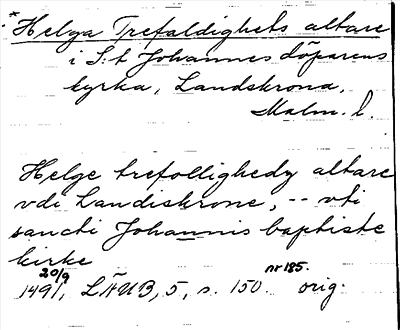 * Helga Trefaldighets altare
i S:t Johannes döparens
kyrka, Landskrona,
Malm. l.
Helge trefollighedz altare
vdi Landiskrone, -- vti
sancti Johannis baptiste
kirke
20/9 1491, LÄUB, 5, s. 150 nr 185. orig.